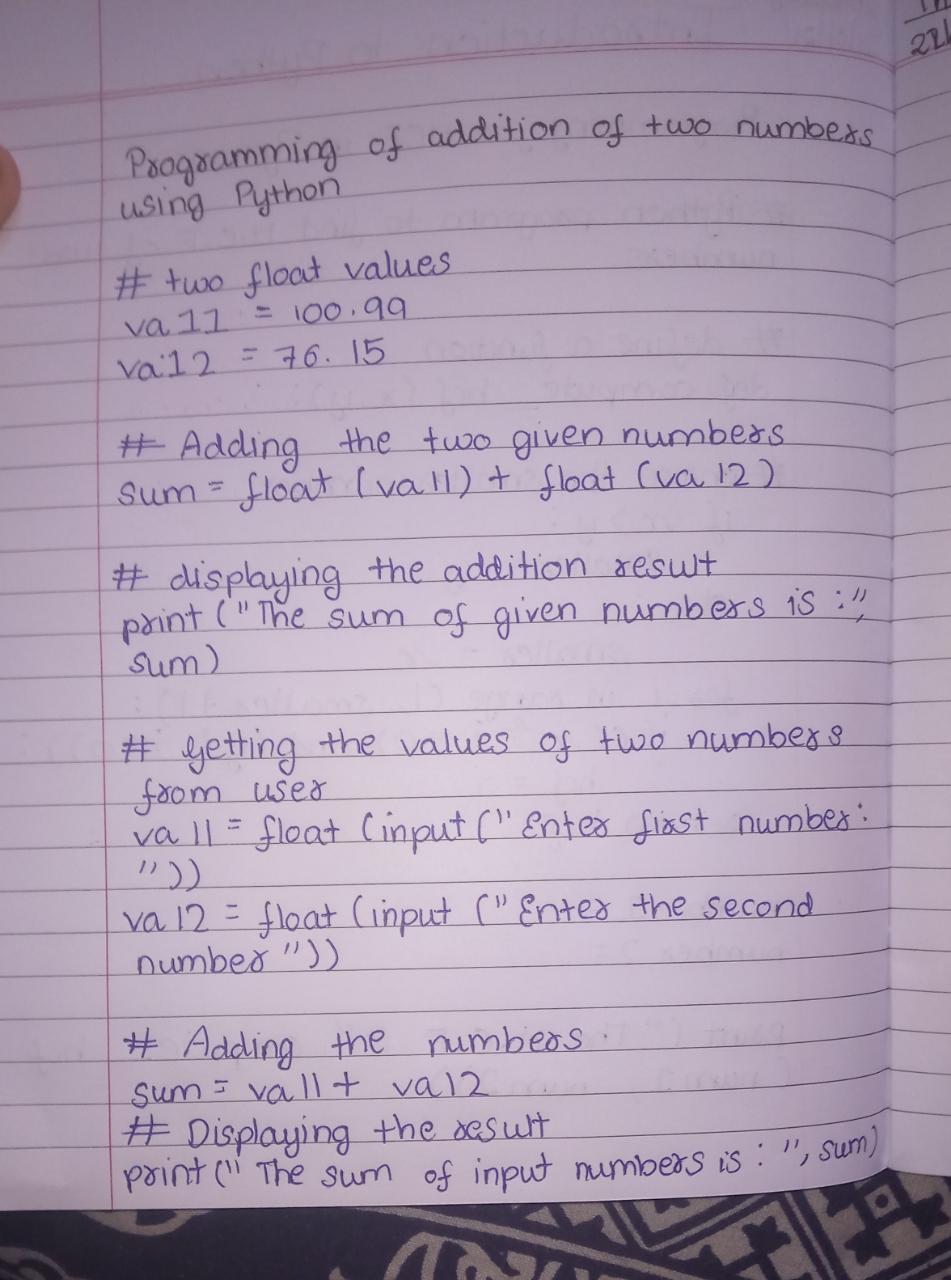 22
Programming of addition of two numbers
using Python
# two float values
va11 = 100.99
va12 = 76.15
# Adding the two given numbers
sum = float (va11) + float (va 12)
# displaying the addition result
print ("The sum of given numbers is :",
sum)
# getting the values of two numbers
from user
va 11 = float (input (" Enter first number:
"))
va 12 = float (input (" Enter the second
number "))
# Adding the numbers
sum = va11 + va12
# Displaying the result
print (" The sum of input numbers is : ", sum)